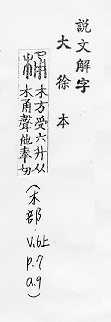 說文解字
大徐本
木方受六升从
木甬聲他奉切
(木部. V.6上 P.7 a.9)